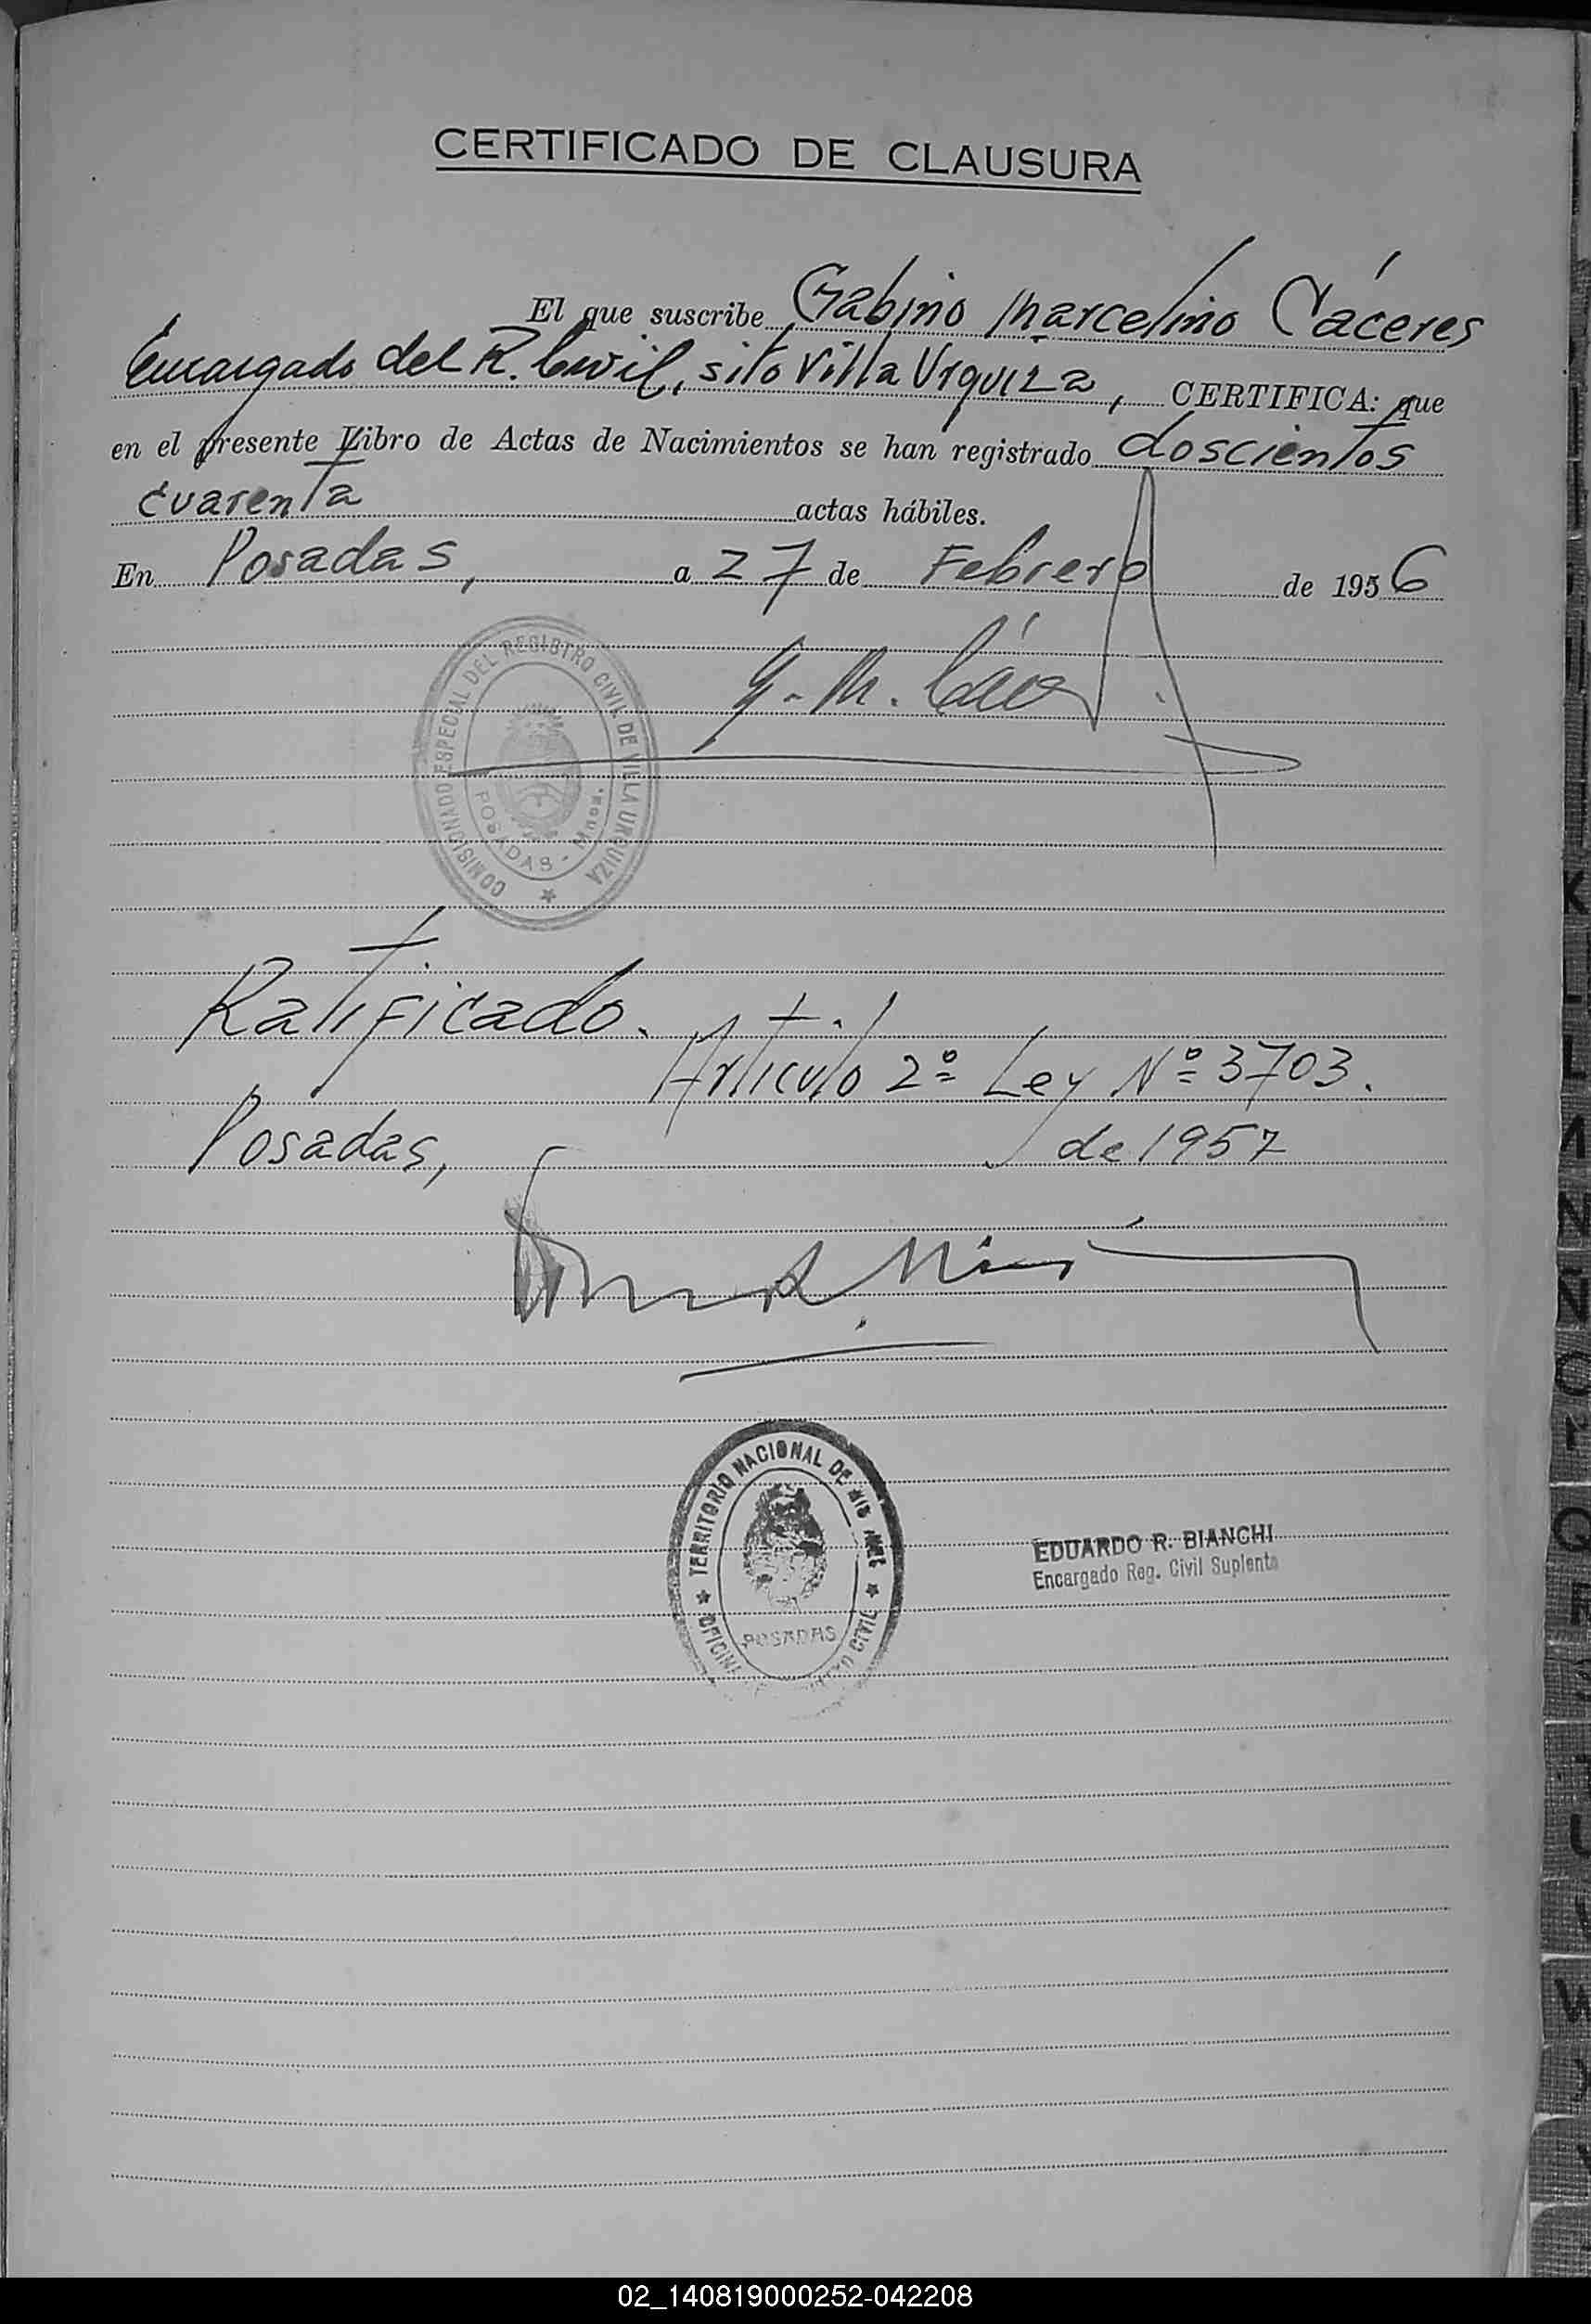 CERTIFICADO DE CLAUSURA
El que suscribe Gabino Marcelino Cáceres
Encargado del R. Civil, sito Villa Urquiza, CERTIFICA: que
en el presente Libro de Actas de Nacimientos se han registrado doscientos
cuarenta actas hábiles.
En Posadas, a 27 de Febrero de 1956
COMISIONADO ESPECIAL DEL REGISTRO CIVIL DE VILLA URQUIZA
POSADAS - Mnes.
G. M. Các
Ratificado.
Artículo 2º Ley Nº 3703.
Posadas, de 1957
TERRITORIO NACIONAL DE
POSADAS
CIVIL
EDUARDO R. BIANCHI
Encargado Reg. Civil Suplente
02_140819000252-042208